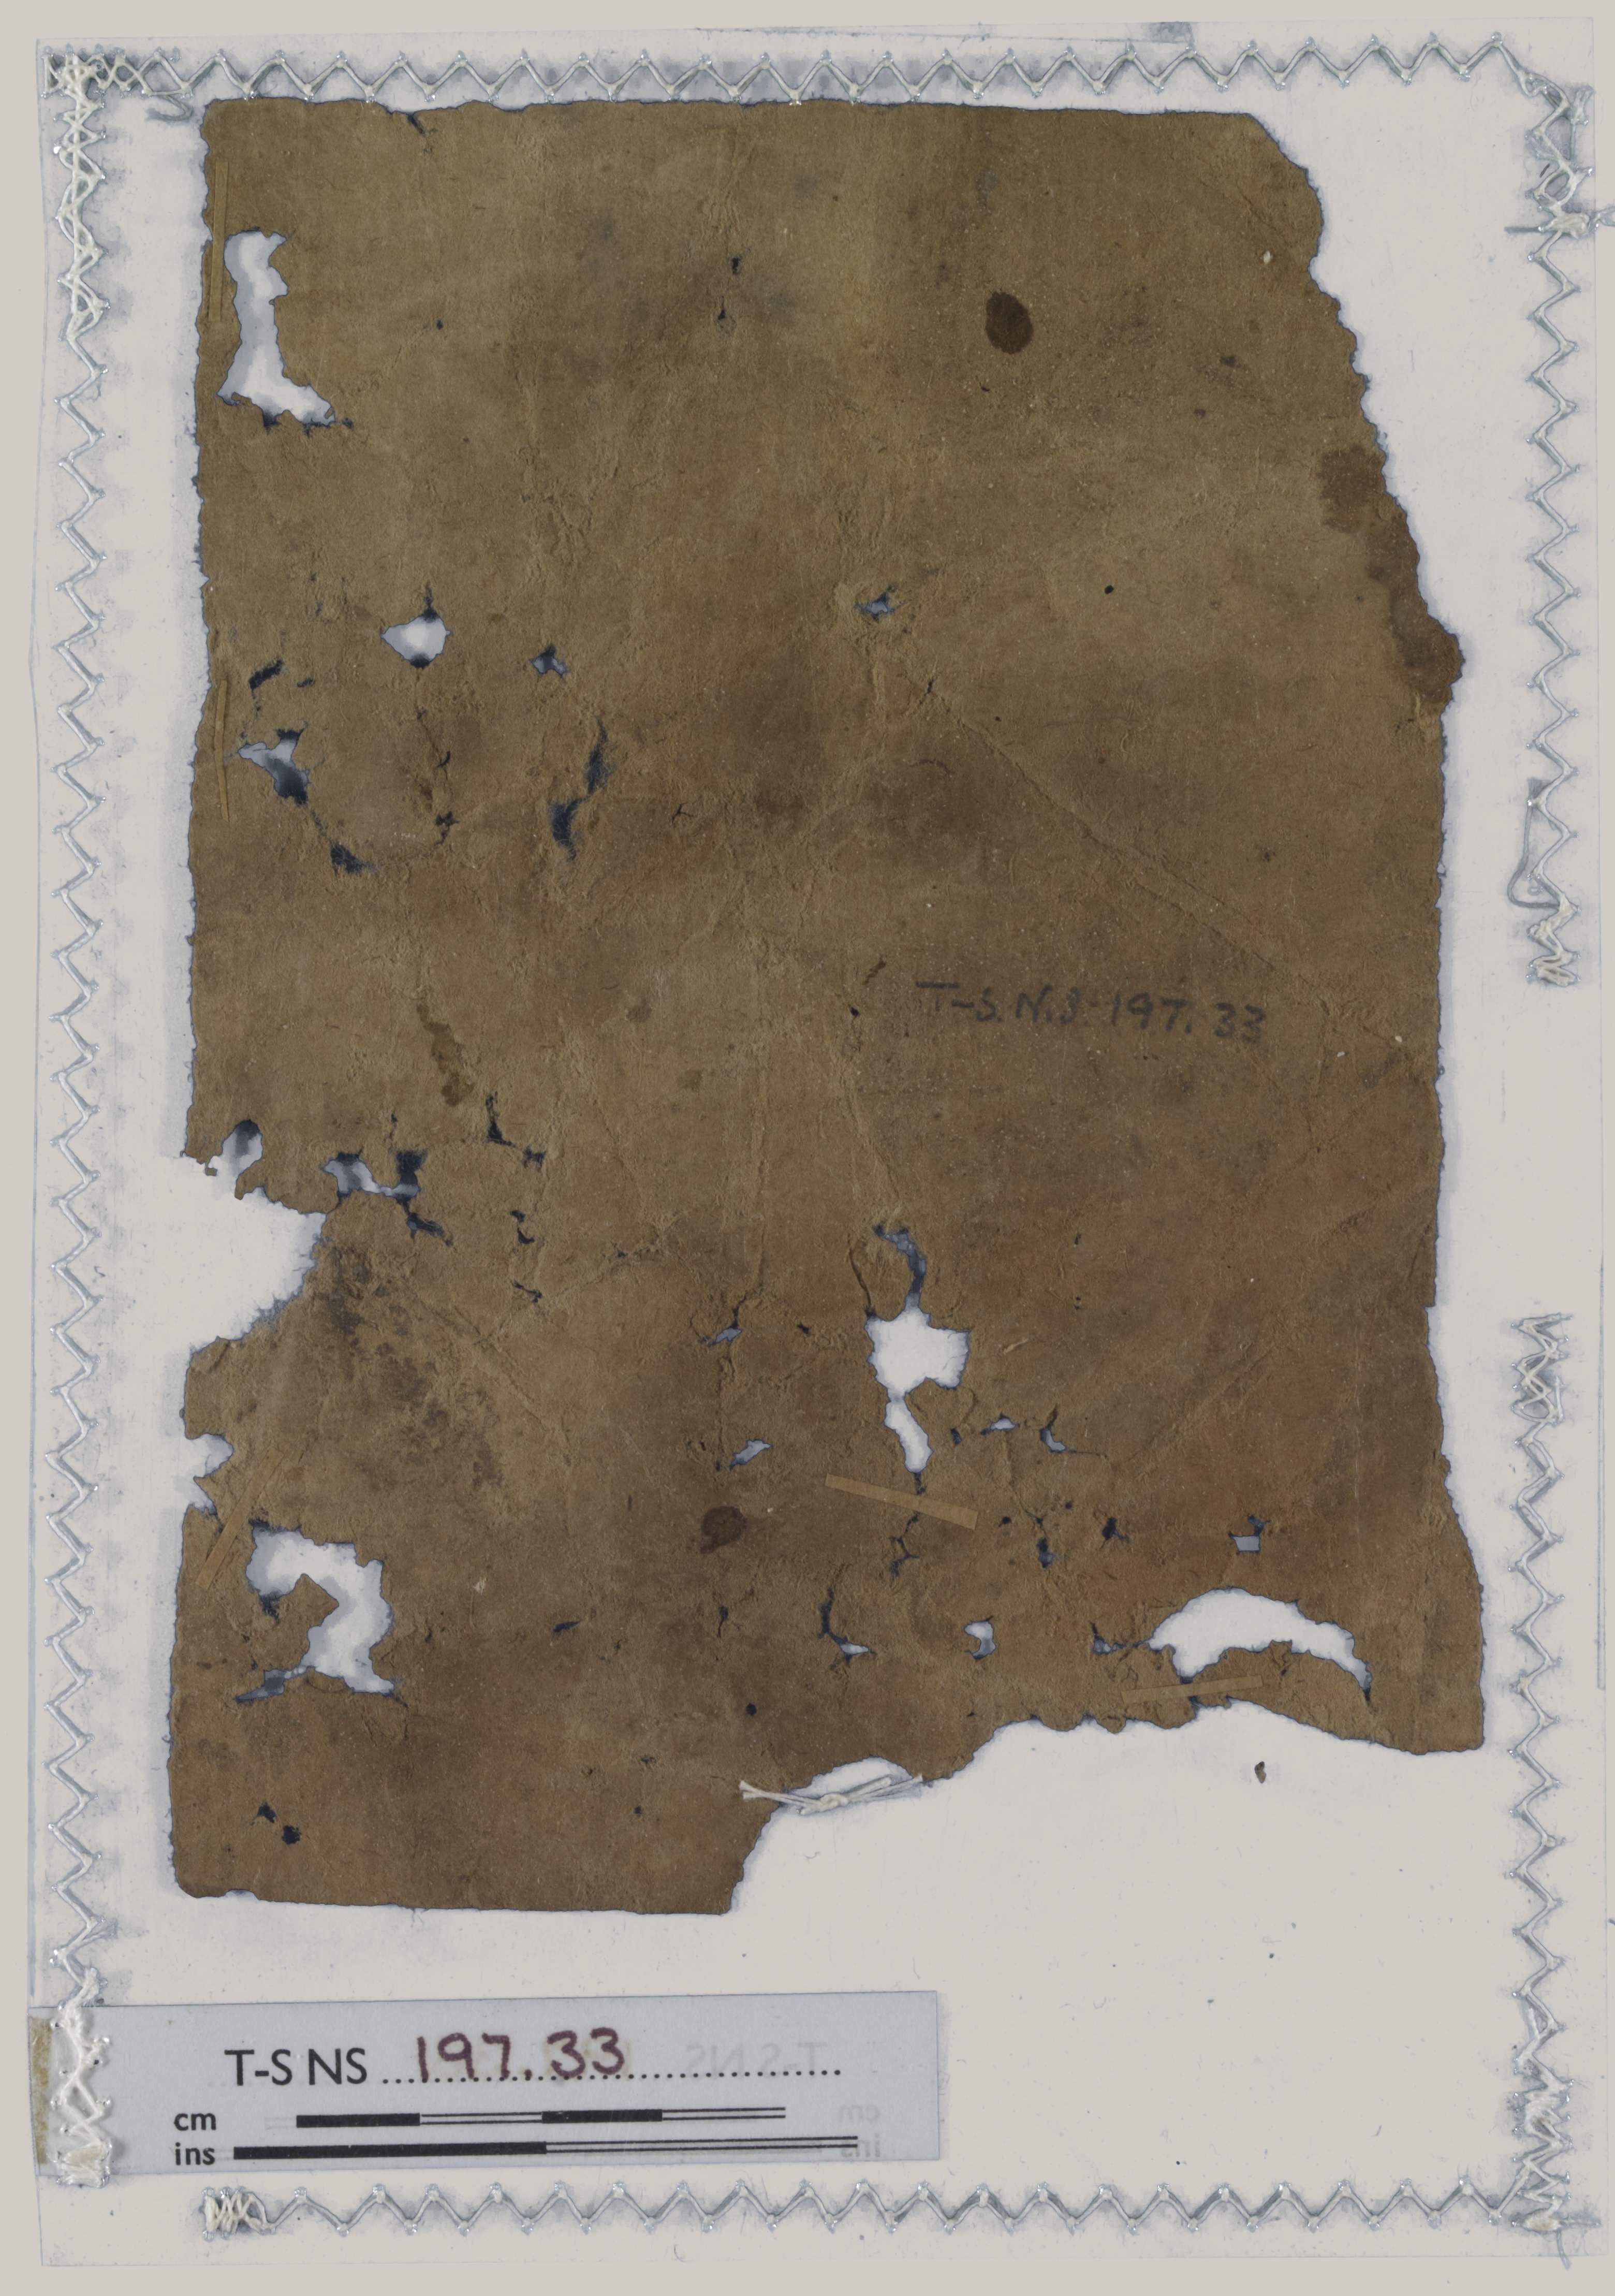 T-S. N.S. 197. 33
T-S NS 197.33
cm
ins